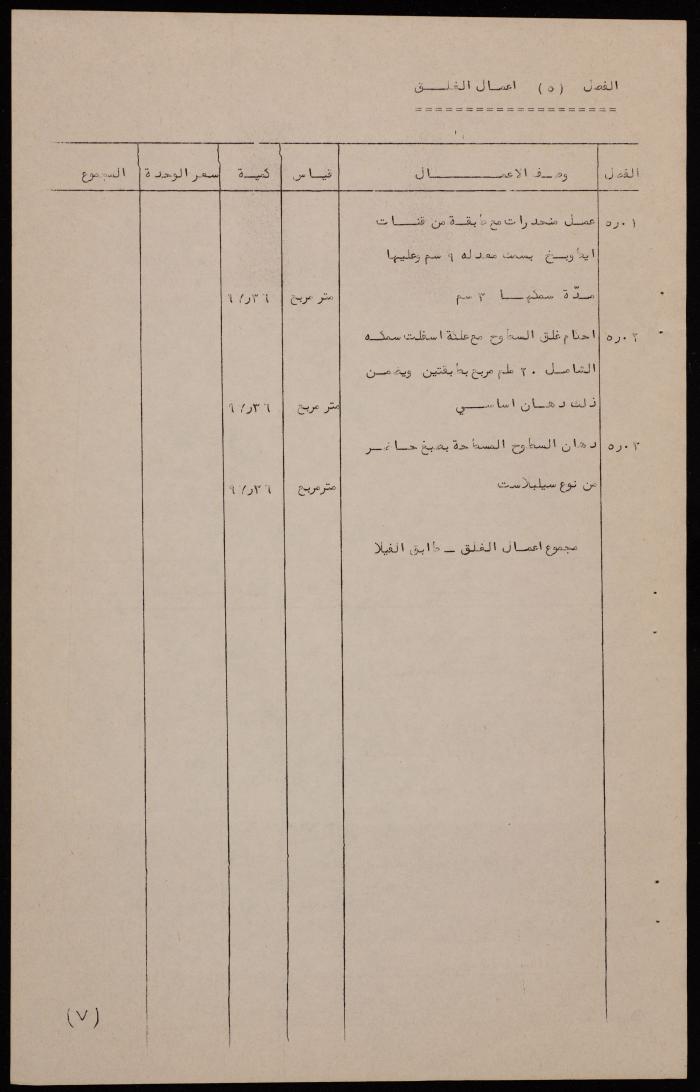 الفصل (٥) اعمال الغلق
الفصل وصف الاعمال قياس كمية سعر الوحدة المجموع
٠١ر٥ عمل منحدرات مع طبقة من فتات
ايطوبخ بسمك معدله ٩ سم وعليها
مدّة سمكها ٣ سم متر مربع
٠٢ر٥ احكام غلق السطوح مع علثة اسفلت سمكه
الشامل ٢٠ ملم مربع بطبقتين ويضمن
ذلك دهان اساسي متر مربع
٠٣ر٥ دهان السطوح المسطحة بصبغ حاضر
من نوع سيلبلاست متر مربع
مجموع اعمال الغلق - طابق الفيلا
(٧)